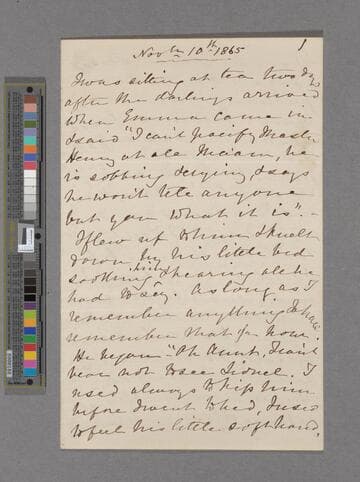 Nov br 10th 1865
1
I was sitting at tea two days
after the darlings arrived
when Emma came in
& said "I can't pacify Master
Henry at all Ma'am, he
is sobbing & crying, & says
he won't tell anyone
but you what it is". -
I flew up to him & knelt
down by his little bed
soothing him & hearing all he
had to say. As long as I
remember anything I shall
remember that hour.
He began "Oh Aunt, I can't
bear not to see Lionel. I
used always to kiss him
before I went to bed, I used
to feel his little soft hand,